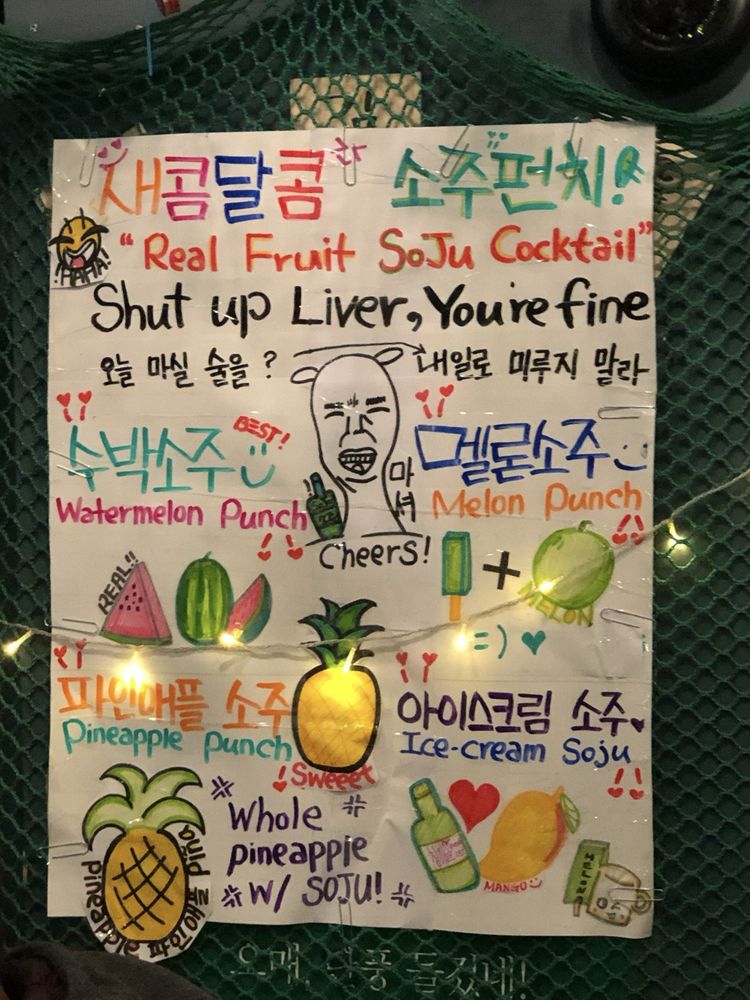 새콤달콤 소주펀치!
HAHA!
"Real Fruit SoJu Cocktail"
Shut up Liver, You're fine
오늘 마실 술을 ? 내일로 미루지 말라
수박소주 BEST!
Watermelon Punch
마셔
Cheers!
멜론소주
Melon Punch
REAL!!
+
MELON
=)
파인애플 소주
Pineapple Punch
Sweeet
아이스크림 소주
Ice-cream Soju
Whole
pineapple
W/ SOJU!
pineapple
pina
MANGO
MELONA
오매, 단풍 들겄네!